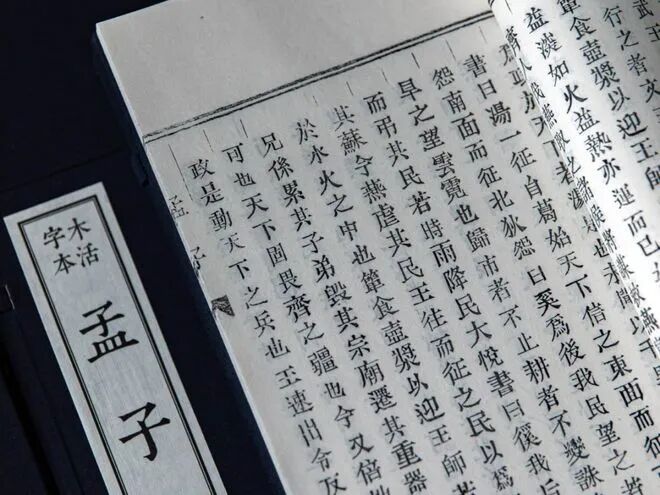 武王
行之者文
簞食壺漿以迎王師
益深如火益熱亦運而已
書曰湯一征自葛始天下信之東面而
怨南面而征北狄怨曰奚爲後我民望之
旱之望雲霓也歸市者不止耕者不變誅
而弔其民若時雨降民大悅書曰徯我
其蘇今燕虐其民王往而征之民以爲
於水火之中也簞食壺漿以迎王師若
兄係累其子弟毀其宗廟遷其重器
可也天下固畏齊之疆也今又倍地
政是動天下之兵也王速出令反
孟子
木活
字本
孟子